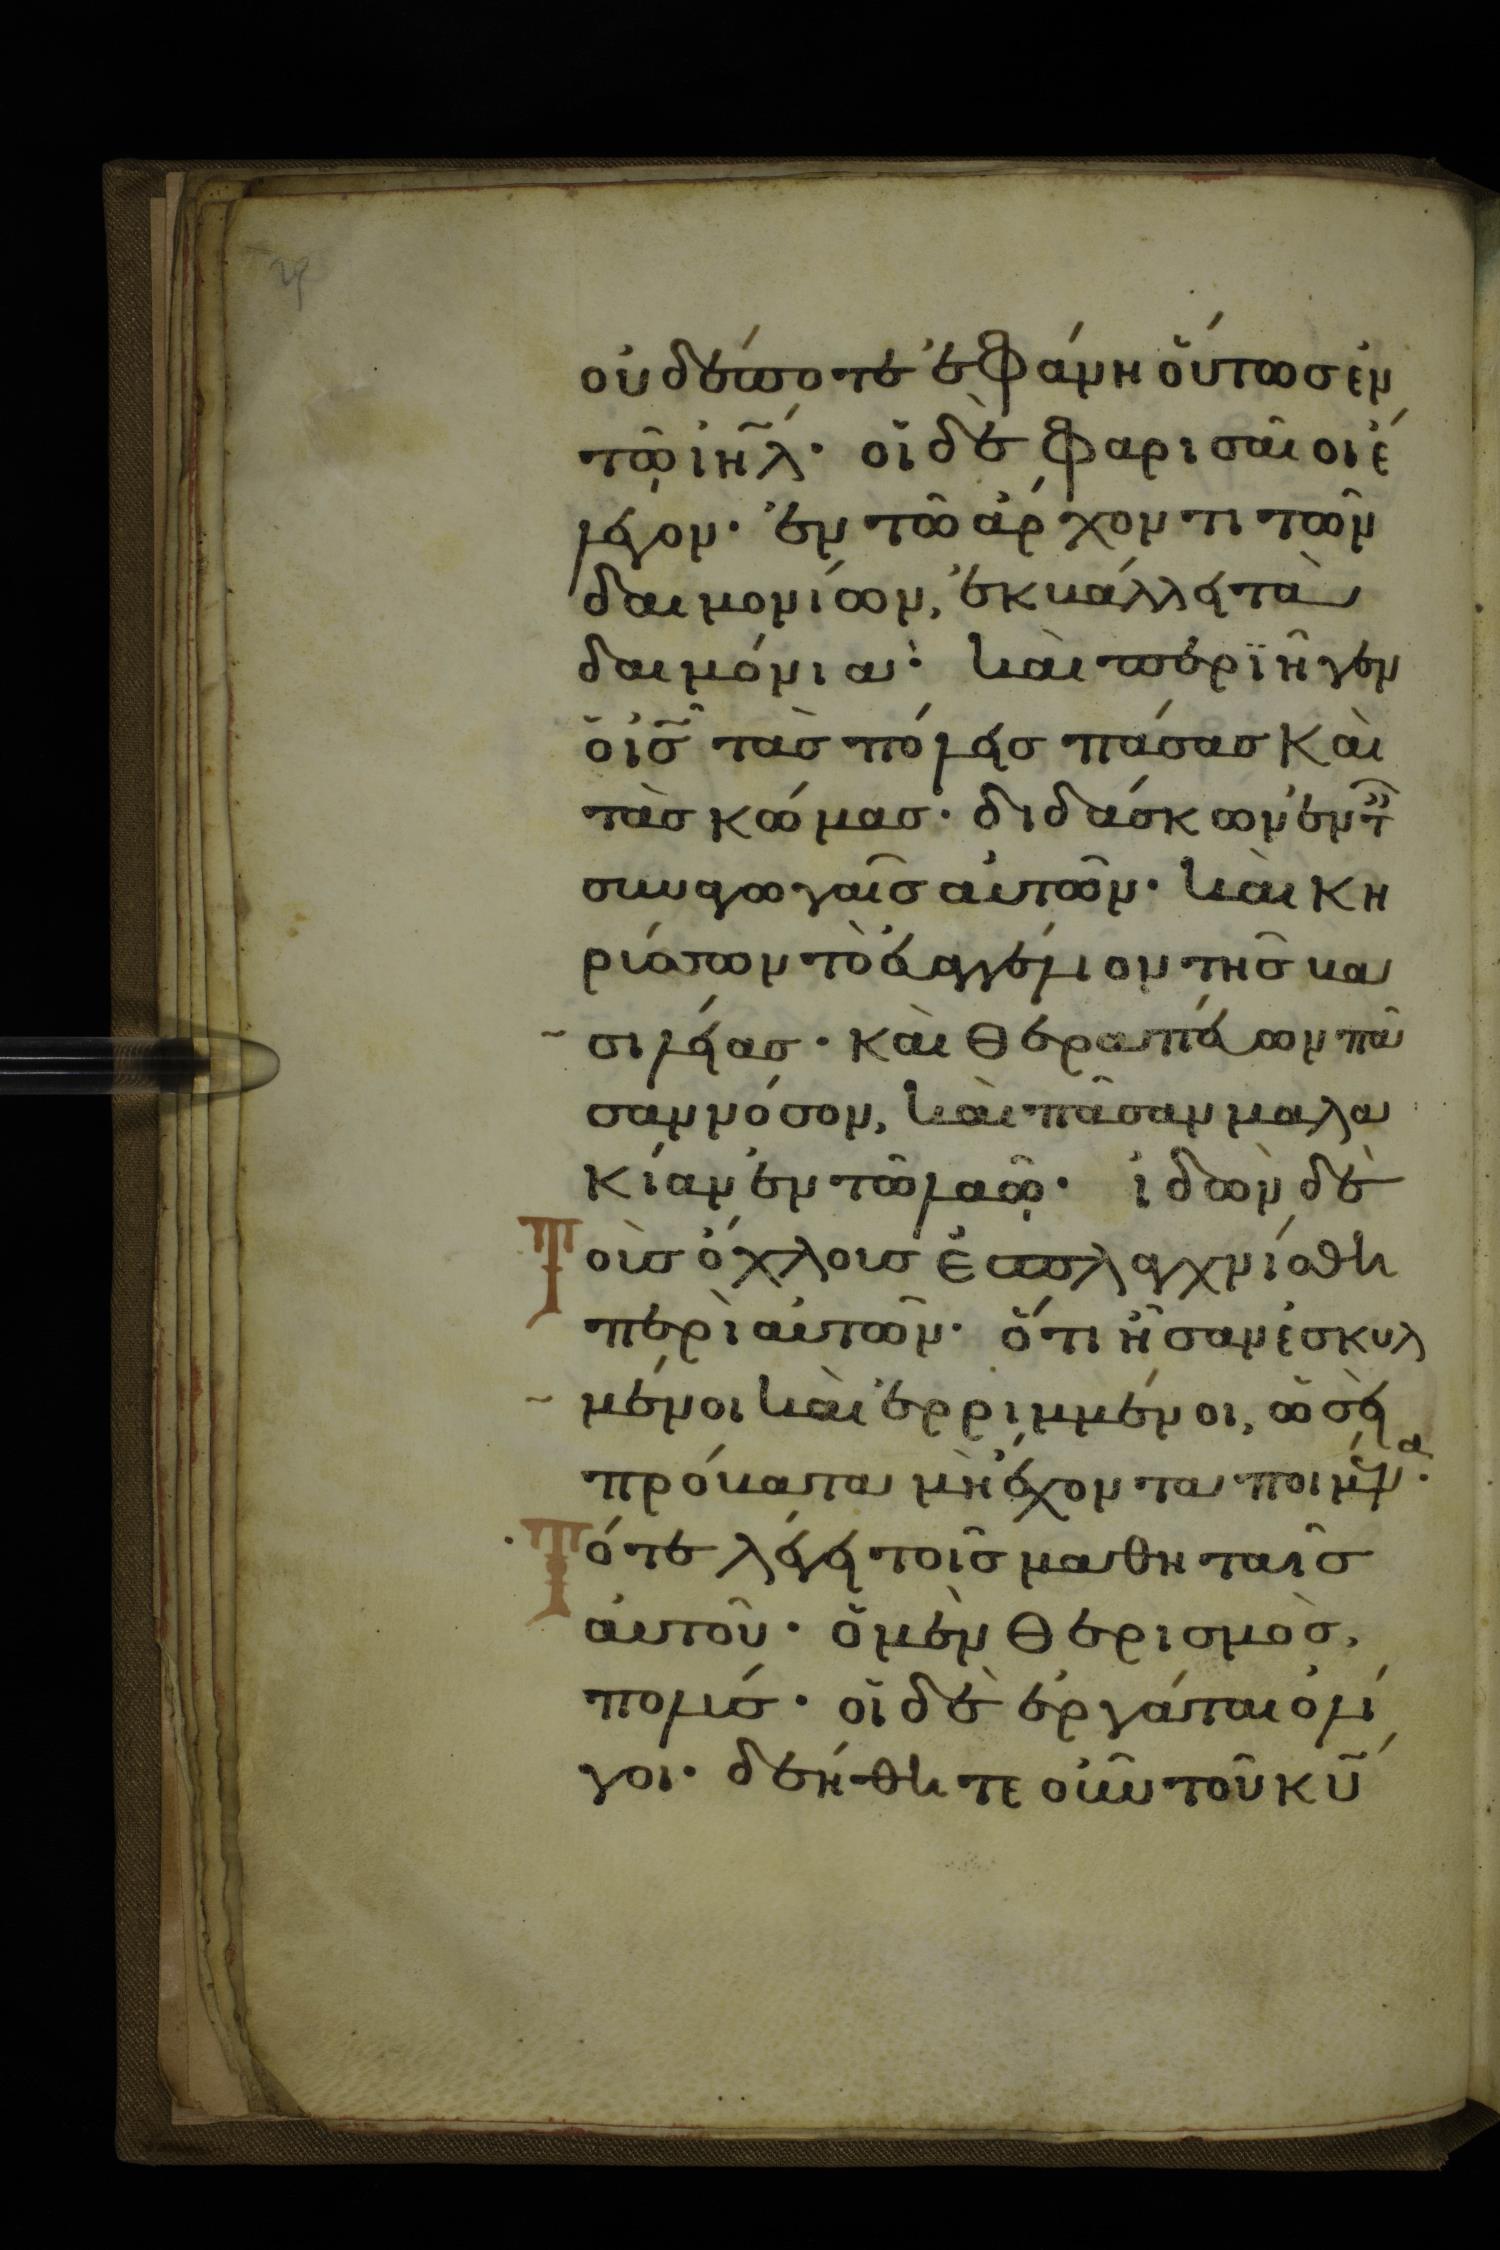 οὐδέποτε ἐφάνη οὕτωσ ἐν
τῷ ἰη̃λ· οἱ δὲ φαρισαῖοι ἔ
λεγον· ἐν τῶ ἄρχοντι τῶν
δαιμονίων, ἐκβάλλει τὰ
δαιμόνια· καὶ περϊῆγεν
ὁ ἰσ̃ τὰσ πόλεισ πάσασ καὶ
τὰσ κώμασ· διδάσκων ἐν τ
συναγωγαῖσ αὐτῶν· καὶ κη
ρύσσων τὸ ἐυαγγέλιον τῆσ βα
σιλείασ· καὶ θεραπεύων πᾶ
σαν νόσον, καὶ πᾶσαν μαλα
κίαν ἐν τῶ λαῷ· ἰδὼν δὲ
Τοὺσ ὄχλουσ ἐσπλαγχνίσθη
περὶ αὐτῶν· ὅτι ἦσαν ἐσκυλ
μένοι καὶ ἐρριμμένοι, ὡσεὶ
πρόβατα μὴ ἔχοντα ποιμένα·
Τότε λέγει τοῖσ μαθηταῖσ
αὐτοῦ· ὁ μὲν θερισμὸσ,
πολύσ· οἱ δὲ ἐργάται ὀλί
γοι· δεήθητε οὖν τοῦ κυ̃